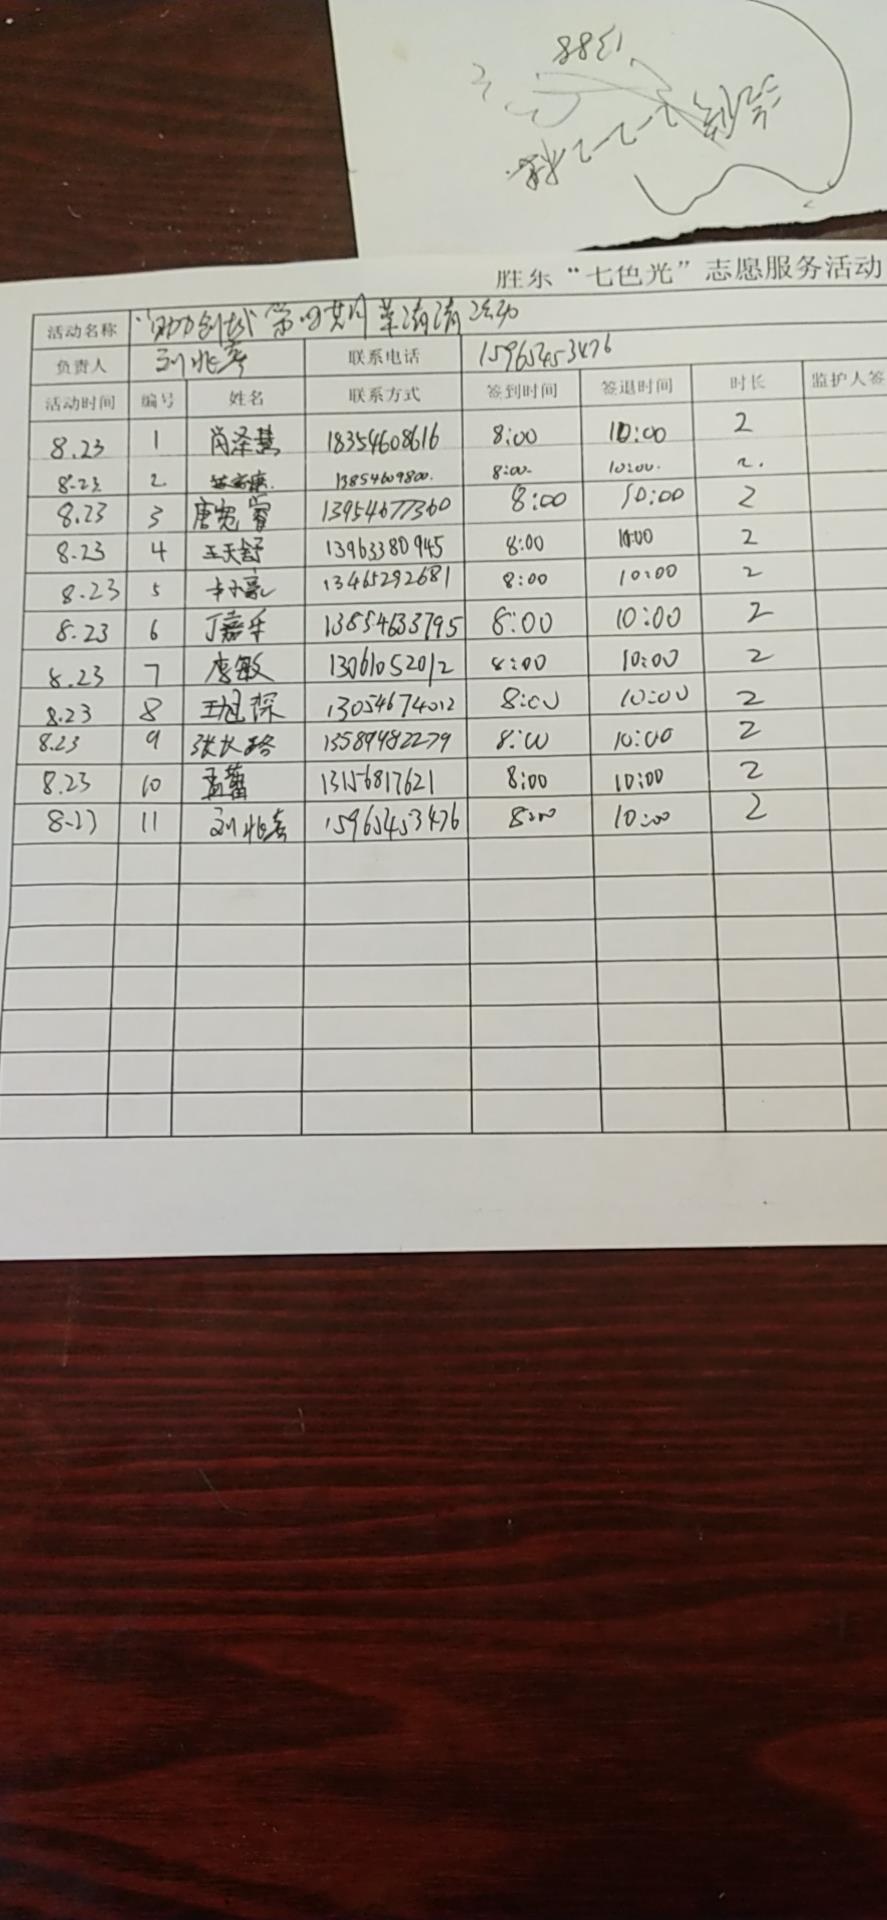 胜东“七色光”志愿服务活动
活动名称 "助力创城
负责人 联系电话 15965453476
活动时间 编号 姓名 联系方式 签到时间 签退时间 时长 监护人签
8.23 1 肖泽慧 18354608616 8:00 10:00 2
8.23 2 13854609800. 8:00 10:00. 2.
8.23 3 唐宽睿 13954677360 8:00 10:00 2
8.23 4 王天舒 13963380945 8:00 10:00 2
8.23 5 13465292681 8:00 10:00 2
8.23 6 丁嘉乐 13854633795 8:00 10:00 2
8.23 7 李敏 13061052012 8:00 10:00 2
8.23 8 13054674012 8:00 10:00 2
8.23 9 13589482279 8:00 10:00 2
8.23 10 孟蕾 13156817621 8:00 10:00 2
8.23 11 15965453476 8:00 10:00 2